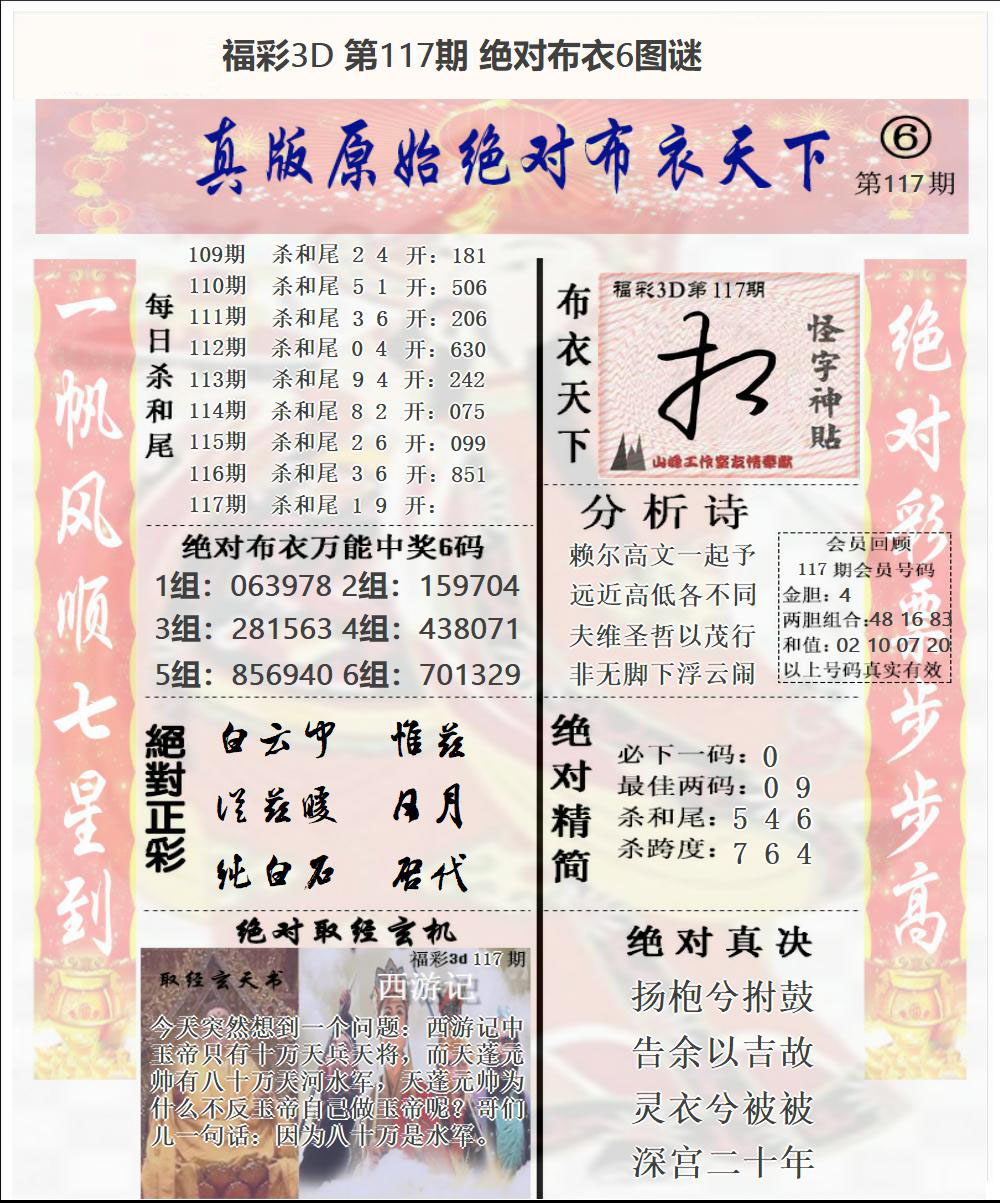 福彩3D 第117期 绝对布衣6图谜
真版原始绝对布衣天下
⑥
第117期
一帆风顺七星到
每日杀和尾
109期 杀和尾 2 4 开：181
110期 杀和尾 5 1 开：506
111期 杀和尾 3 6 开：206
112期 杀和尾 0 4 开：630
113期 杀和尾 9 4 开：242
114期 杀和尾 8 2 开：075
115期 杀和尾 2 6 开：099
116期 杀和尾 3 6 开：851
117期 杀和尾 1 9 开：
绝对布衣万能中奖6码
1组：063978 2组：159704
3组：281563 4组：438071
5组：856940 6组：701329
絕對正彩
白云中 惟兹
从兹暖 日月
纯白石 启代
绝对取经玄机
福彩3d 117期
取经玄天书
西游记
今天突然想到一个问题：西游记中
玉帝只有十万天兵天将，而天蓬元
帅有八十万天河水军，天蓬元帅为
什么不反玉帝自己做玉帝呢？哥们
儿一句话：因为八十万是水军。
布衣天下
福彩3D第117期
怪字神贴
山峰工作室友情奉献
分析诗
赖尔高文一起予
远近高低各不同
夫维圣哲以茂行
非无脚下浮云闹
会员回顾
117期会员号码
金胆：4
两胆组合:48 16 83
和值：02 10 07 20
以上号码真实有效
绝对精简
必下一码：0
最佳两码：0 9
杀和尾：5 4 6
杀跨度：7 6 4
绝对真决
扬枹兮拊鼓
告余以吉故
灵衣兮被被
深宫二十年
绝对彩票步步高